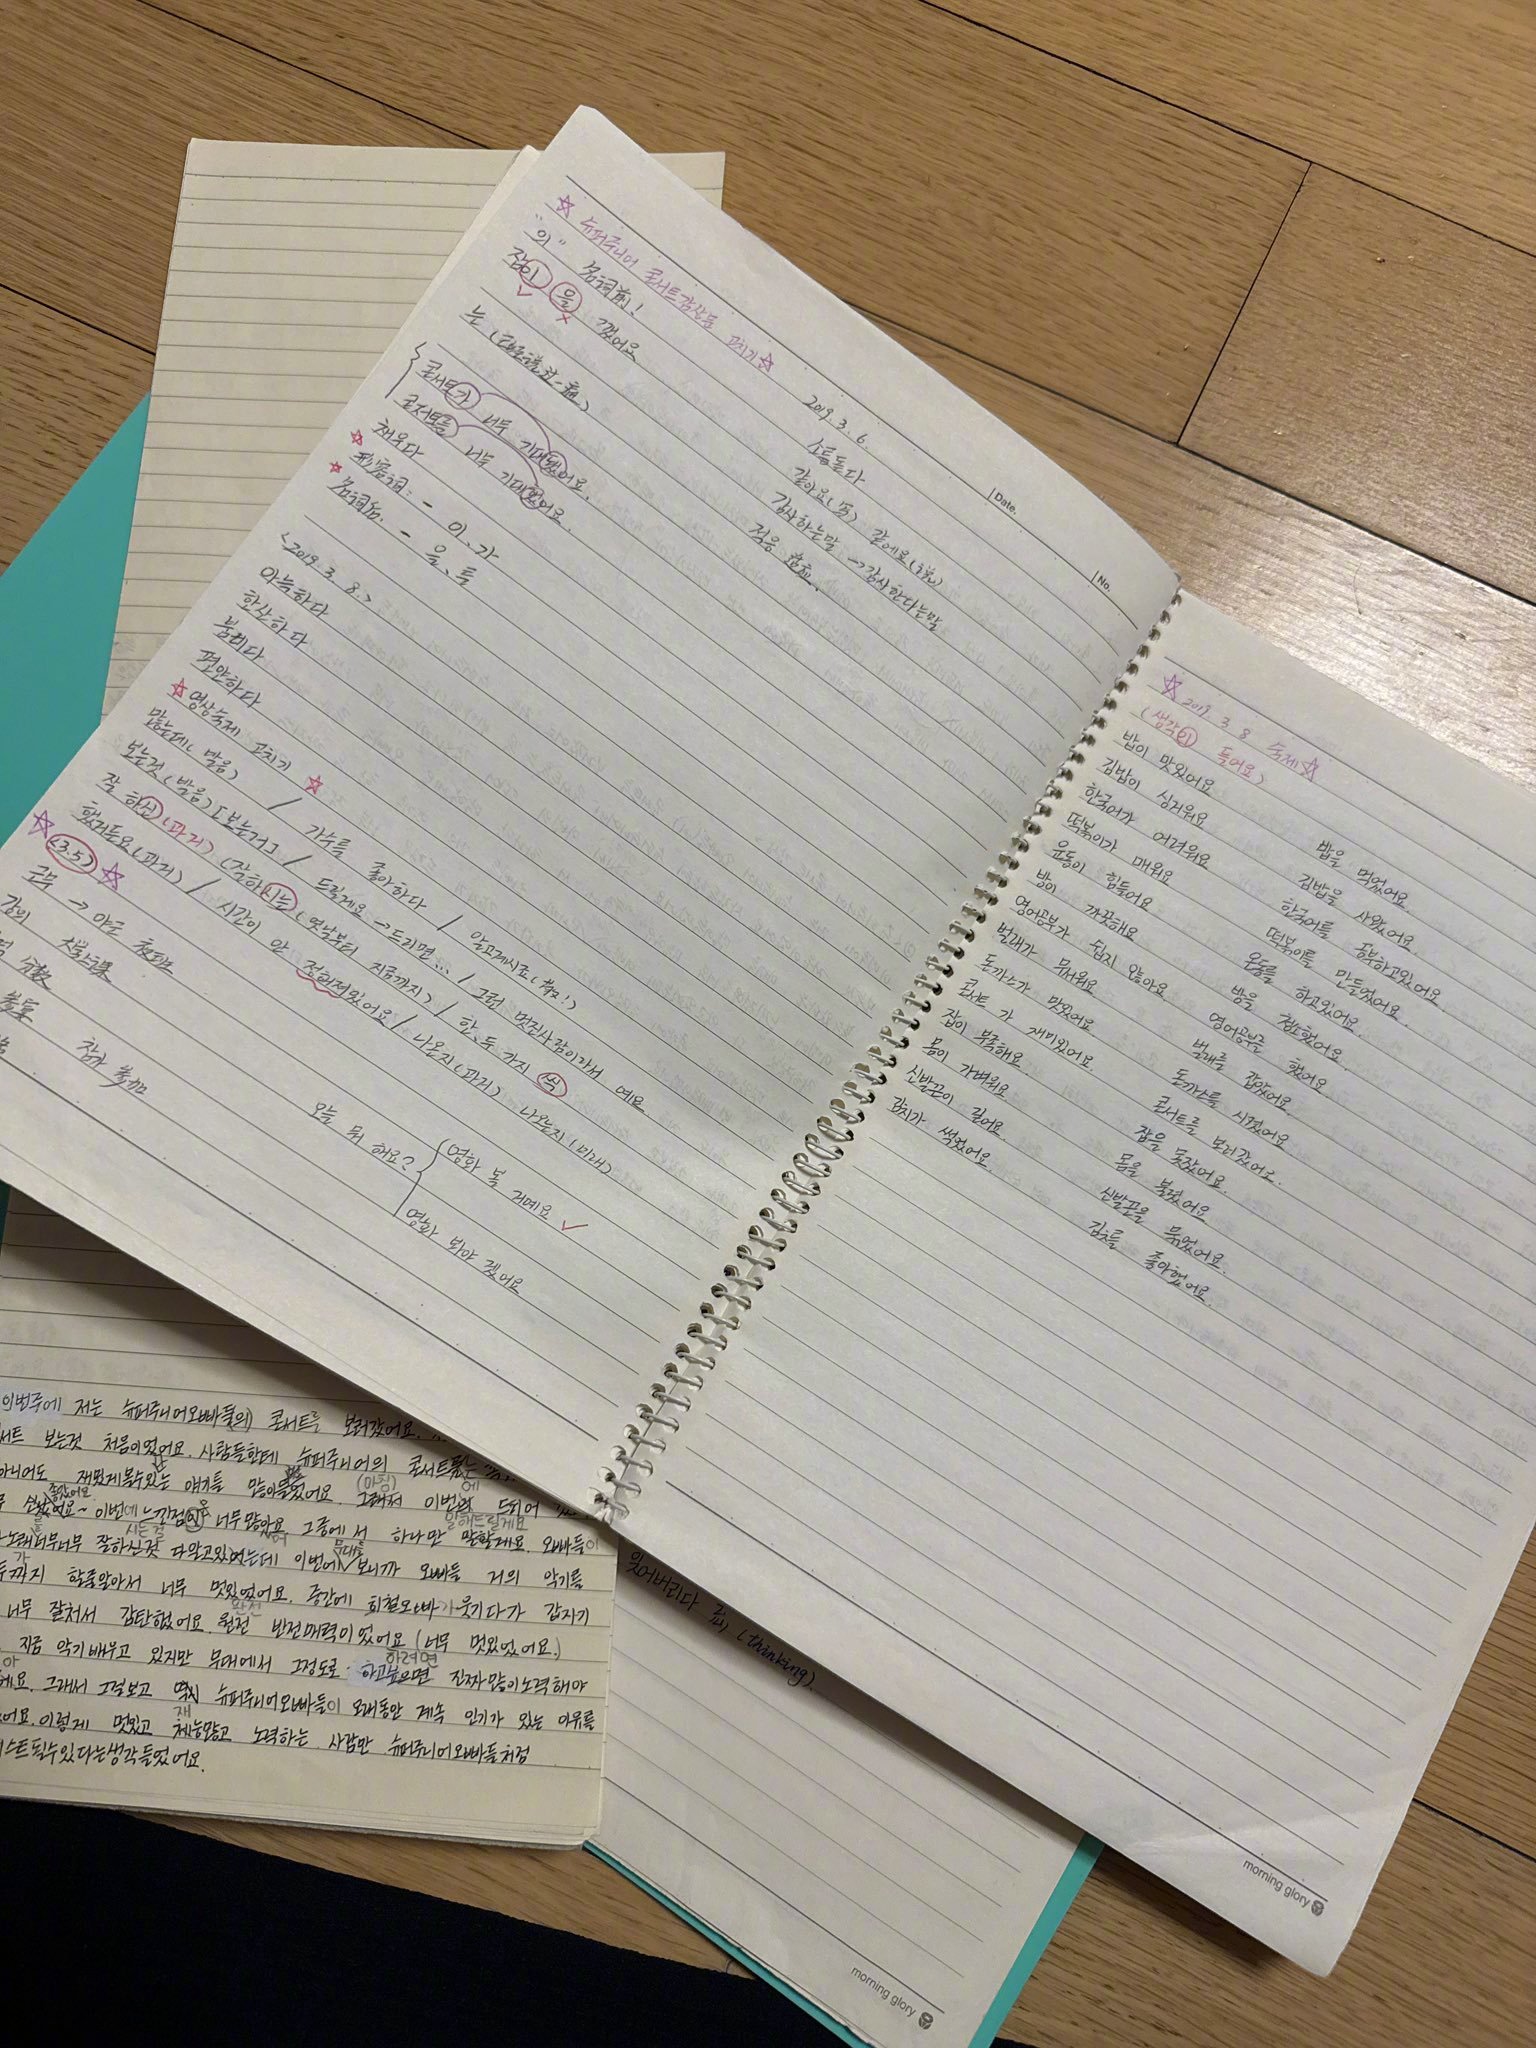 ☆ 슈퍼주니어 콘서트 감상문 폐기 ☆
Date.
No.
2019. 3. 6
"의" 名詞前!
잠이 을 깼어요
는
콘서트가 너무 기대됐어요.
콘서트를 너무 기대했어요.
채우다
☆ 形容詞: - 이, 가
☆ 名詞 - 을, 를
소름돋다
같아요(写) 같에요(說)
감사하는말 → 감사한다는말
적응
<2019. 3. 8.>
아늑하다
한산하다
붐비다
편안하다
☆ 영상숙제 고치기 ☆
많는데(발음) / 가수를 좋아하다 / 알고계시죠
보는것(발음)[보는거] / 드릴게요 → 드리면... / 그런 멋진사람이라서 예요.
잘 하신(과거) (잘하시는(옛날부터 지금까지) / 한, 두 가지 씩
했거든요(과거) / 시간이 안 정해져있어요 / 나온지(과거) 나오는지(미래)
☆ <3.5> ☆
→ 야근
강의
참가 参加
오늘 뭐 해요?
영화 볼 거예요 ✓
영화 봐야 겠어요
☆ 2019. 3. 8 숙제 ☆
(생각이 들어요)
밥이 맛있어요 밥을 먹었어요.
김밥이 싱거워요 김밥을 사왔어요.
한국어가 어려워요 한국어를 공부하고있어요
떡볶이가 매워요 떡볶이를 만들었어요.
운동이 힘들어요 운동를 하고있어요.
방이 깨끗해요 방을 청소했어요
영어공부가 쉽지 않아요 영어공부를 했어요
벌레가 무서워요 벌레를 잡았어요.
돈까스가 맛있어요 돈까스를 시켰어요
콘서트 가 재미있어요. 콘서트를 보러갔어요.
잠이 부족해요. 잠을 못잤어요.
몸이 가벼워요 몸을 풀렸어요
신발끈이 길어요. 신발끈을 묶었어요.
김치가 썩었어요. 김치를 좋아했어요.
morning glory
이번주에 저는 슈퍼주니어오빠들(의) 콘서트를 보러갔어요.
보는것 처음이었어요. 사람들한테 슈퍼주니어의
아니어도 재밌게볼수있는 얘기를 많이들었어요. (마침) 그래서 이번에 드디어
좋았어요
이번에 느낀점이 너무많아요 그중에서 하나만 말할게요. 오빠들이
말해드릴게요
시는걸
노래너무너무 잘하신것 다알고있었는데 이번에 무대를 보니까 오빠들 거의 악기를
까지 할줄알아서 너무 멋있었어요. 중간에 희철오빠가 웃기다가 갑자기
완전
너무 잘쳐서 감탄했어요. 원전 반전매력이었어요 (너무 멋있었어요.)
지금 악기배우고 있지만 무대에서 그정도로 하고싶으면 진짜많이노력해야
하려면
그래서 그걸보고 역시 슈퍼주니어오빠들이 오래동안 계속 인기가 있는 이유를
이렇게 멋있고 체능많고 노력하는 사람만 슈퍼주니어오빠들처럼
재
될수있다는생각들었어요.
잊어버리다 忘 (thinking)
morning glory